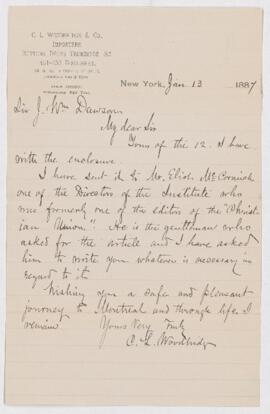 C. L. WOODBRIDGE & CO.
IMPORTERS
New York, Jan 13 1887
Sir J. Wm Dawson
My dear Sir
Yours of the 12. I have
with the enclosure.
I have sent it to Mr. Elioh. McCormick
one of the Directors of the Institute who
was formerly one of the editors of the "Christ-
ian Union". He is the gentleman who
asked for the article and I have asked
him to write you whatever is necessary in
regard to it.
Wishing you a safe and pleasant
journey to Montreal and through life. I
remain
Yours Very Truly
C. L. Woodbridge